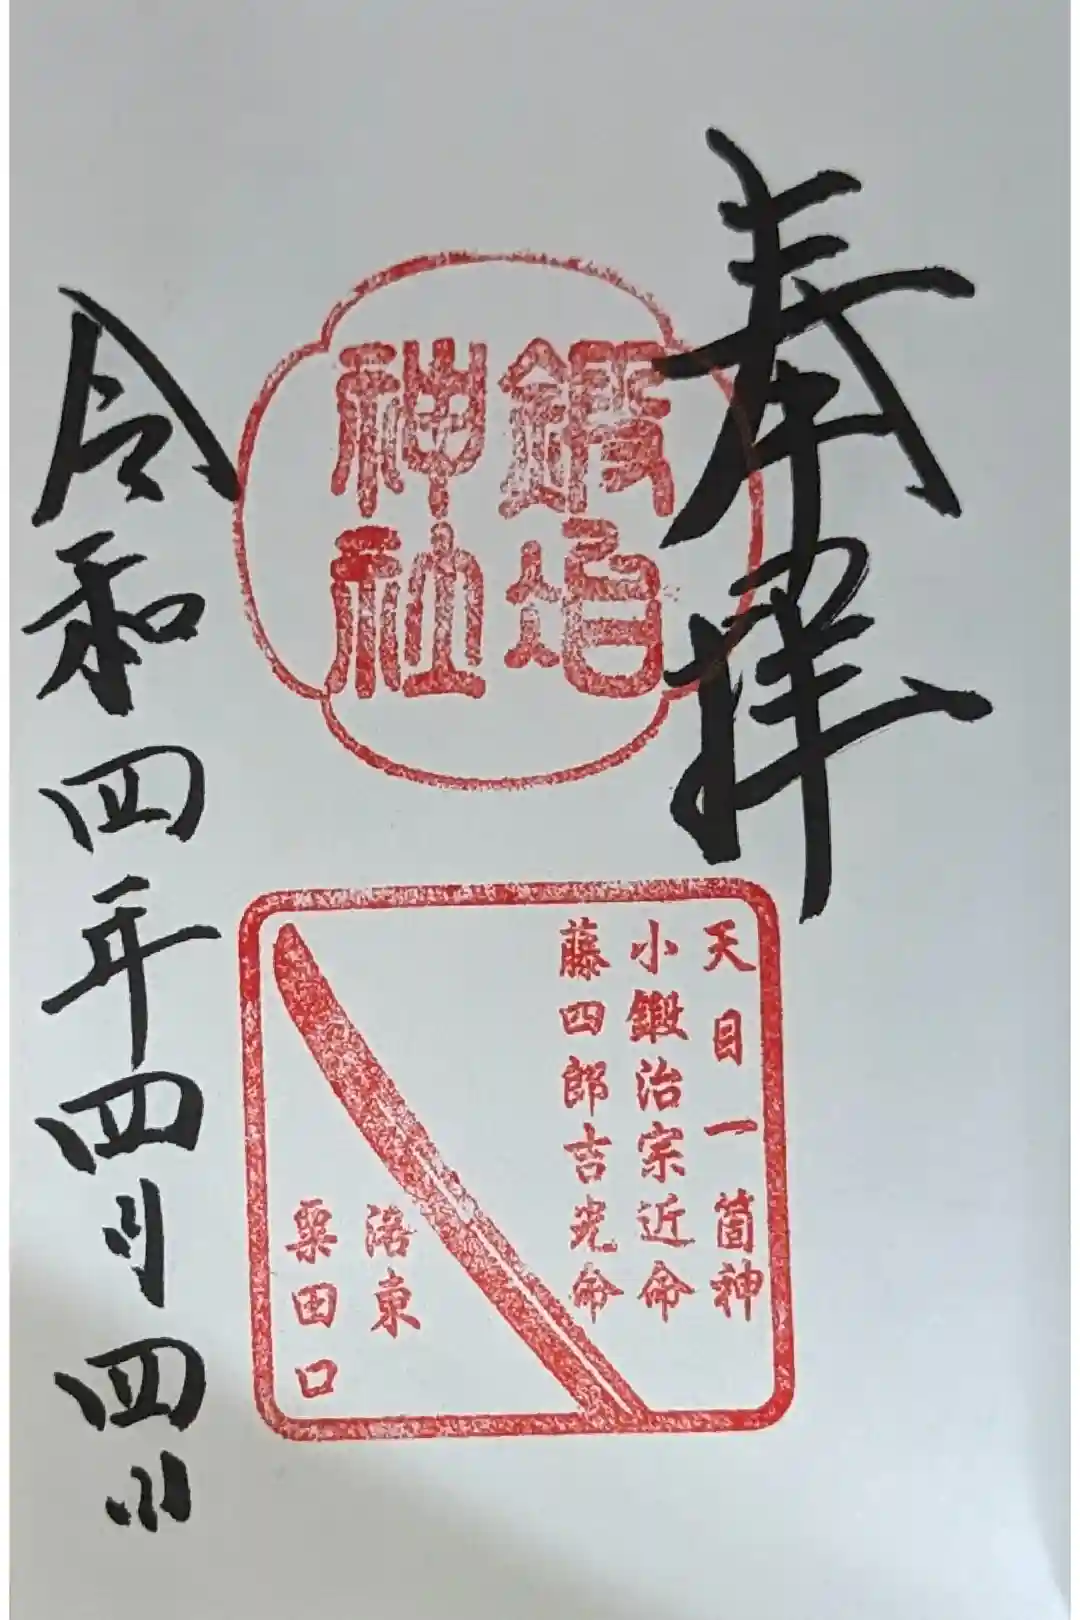 奉拝
鍛冶
神社
天目一箇神
小鍛冶宗近命
藤四郎吉光命
洛東
粟田口
令和四年四月四日